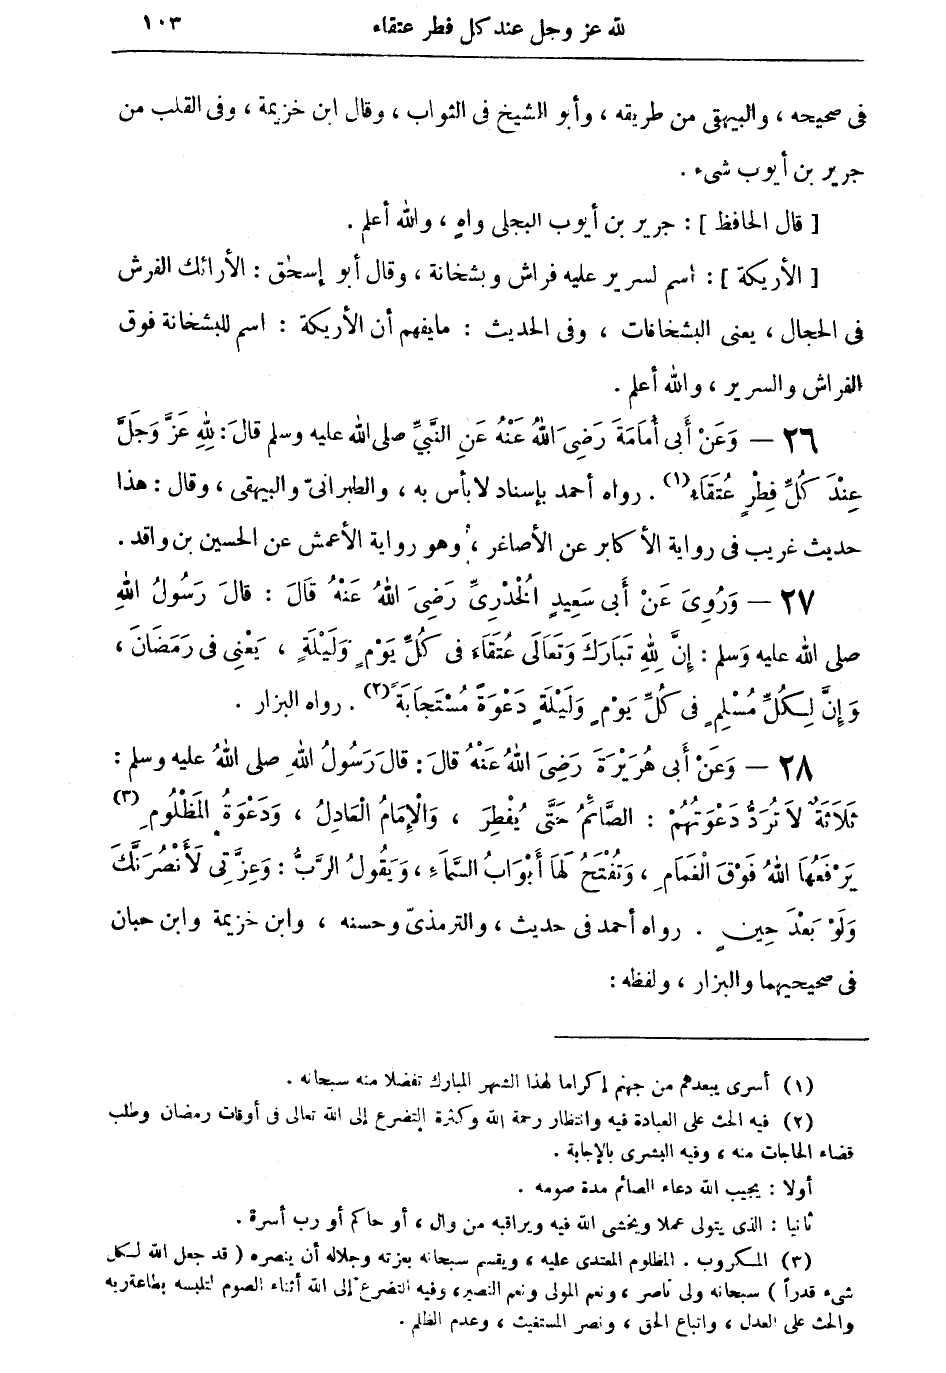 لله عز وجل عند كل فطر عتقاء ١٠٣
فى صحيحه ، والبيهقى من طريقه ، وأبو الشيخ فى الثواب ، وقال ابن خزيمة ، وفى القلب من
جرير بن أيوب شىء .
[ قال الحافظ ] : جرير بن أيوب البجلى واهٍ ، والله أعلم .
[ الأريكة ] : اسم لسرير عليه فراش وبشخانة ، وقال أبو إسحٰق : الأرائك الفرش
فى الحجال ، يعنى البشخانات ، وفى الحديث : مايفهم أن الأريكة : اسم للبشخانة فوق
الفراش والسرير ، والله أعلم .
٢٦ — وَعَنْ أَبِى أُمَامَةَ رَضِىَ اللهُ عَنْهُ عَنِ النَّبِيِّ صلى الله عليه وسلم قالَ : لِلهِ عَزَّ وَجَلَّ
عِنْدَ كُلِّ فِطْرٍ عُتَقَاءُ (١) . رواه أحمد بإسناد لابأس به ، والطبرانىّ والبيهقى ، وقال : هذا
حديث غريب فى رواية الأكابر عن الأصاغر ، وهو رواية الأعمش عن الحسين بن واقد .
٢٧ — وَرُوِىَ عَنْ أَبِى سَعِيدٍ الْخُدْرِىِّ رَضِىَ اللهُ عَنْهُ قَالَ : قالَ رَسُولُ اللهِ
صلى الله عليه وَسلم : إِنَّ لِلهِ تَبَارَكَ وَتَعَالَى عُتَقَاءَ فى كُلِّ يَوْمٍ وَلَيْلَةٍ ، يَعْنِى فى رَمَضَانَ ،
وَإِنَّ لِكُلِّ مُسْلِمٍ فى كُلِّ يَوْمٍ وَلَيْلَةٍ دَعْوَةً مُسْتَجَابَةً (٢) . رواه البزار .
٢٨ — وَعَنْ أَبِى هُرَيْرَةَ رَضِىَ اللهُ عَنْهُ قالَ : قالَ رَسُولُ اللهِ صلى اللهُ عليه وسلم :
ثَلَاثَةٌ لاَ تُرَدُّ دَعْوَتُهُمْ : الصَّائِمُ حَتَّى يُفْطِرَ ، وَالْإِمَامُ الْعَادِلُ ، وَدَعْوَةُ الْمَظْلُومِ (٣)
يَرْفَعُهَا اللهُ فَوْقَ الْغَمَامِ ، وَتُفْتَحُ لَهَا أَبْوَابُ السَّمَاءِ ، وَيَقُولُ الرَّبُّ : وَعِزَّتِى لَأَنْصُرَنَّكَ
وَلَوْ بَعْدَ حِينٍ . رواه أحمد فى حديث ، والترمذىّ وحسنه ، وابن خزيمة وابن حبان
فى صحيحيهما والبزار ، ولفظه :
(١) أسرى يبعدهم من جهنم إكراما لهذا الشهر المبارك تفضلا منه سبحانه .
(٢) فيه الحث على العبادة فيه وانتظار رحمة الله وكثرة التضرع إلى الله تعالى فى أوقات رمضان وطلب
قضاء الحاجات منه ، وفيه البشرى بالإجابة .
أولا : يجيب الله دعاء الصائم مدة صومه .
ثانيا : الذى يتولى عملا ويخشى الله فيه ويراقبه من وال ، أو حاكم أو رب أسرة .
(٣) المكروب . المظلوم المعتدى عليه ، ويقسم سبحانه بعزته وجلاله أن ينصره ( قد جعل الله لكل
شىء قدراً ) سبحانه ولى ناصر ، ونعم المولى ونعم النصير ، وفيه التضرع إلى الله أثناء الصوم لتلبسه بطاعة ربه
والحث على العدل ، واتباع الحق ، ونصر المستغيث ، وعدم الظلم .